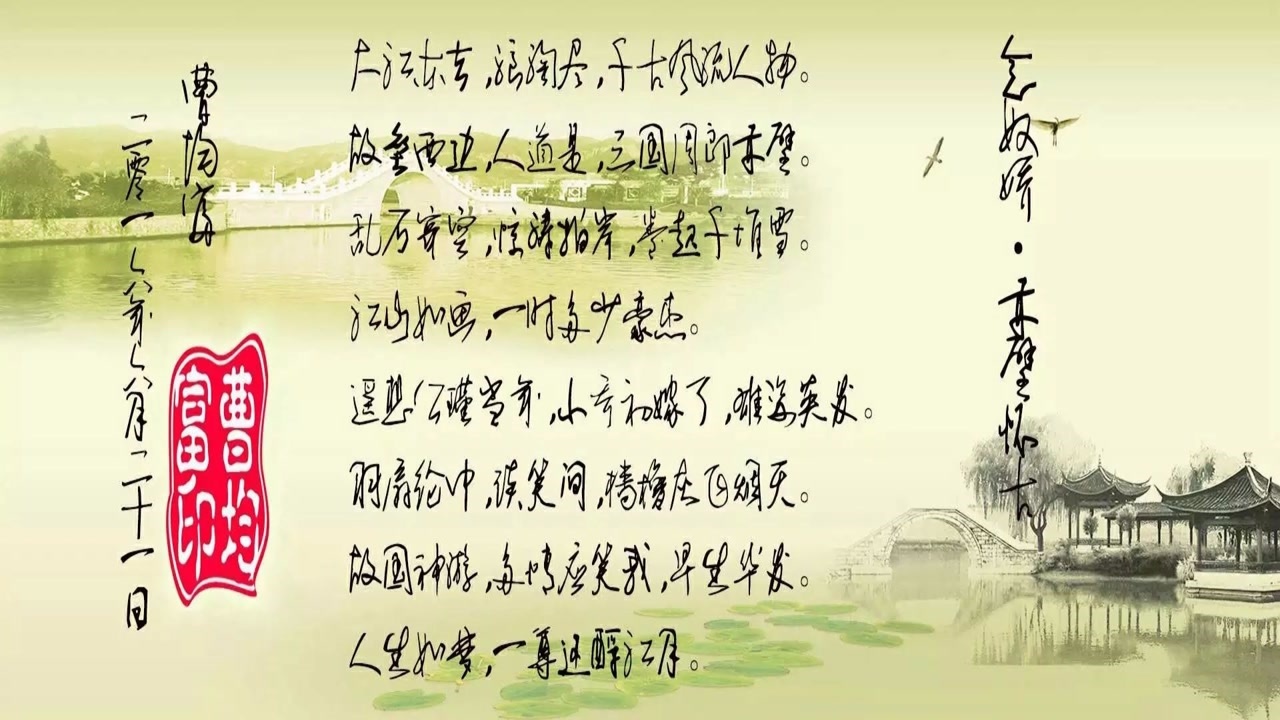 念奴娇·赤壁怀古
大江东去,浪淘尽,千古风流人物。
故垒西边,人道是,三国周郎赤壁。
乱石穿空,惊涛拍岸,卷起千堆雪。
江山如画,一时多少豪杰。
遥想公瑾当年,小乔初嫁了,雄姿英发。
羽扇纶巾,谈笑间,樯橹灰飞烟灭。
故国神游,多情应笑我,早生华发。
人生如梦,一尊还酹江月。
曹均富
二零一八年八月二十一日
曹均
富印